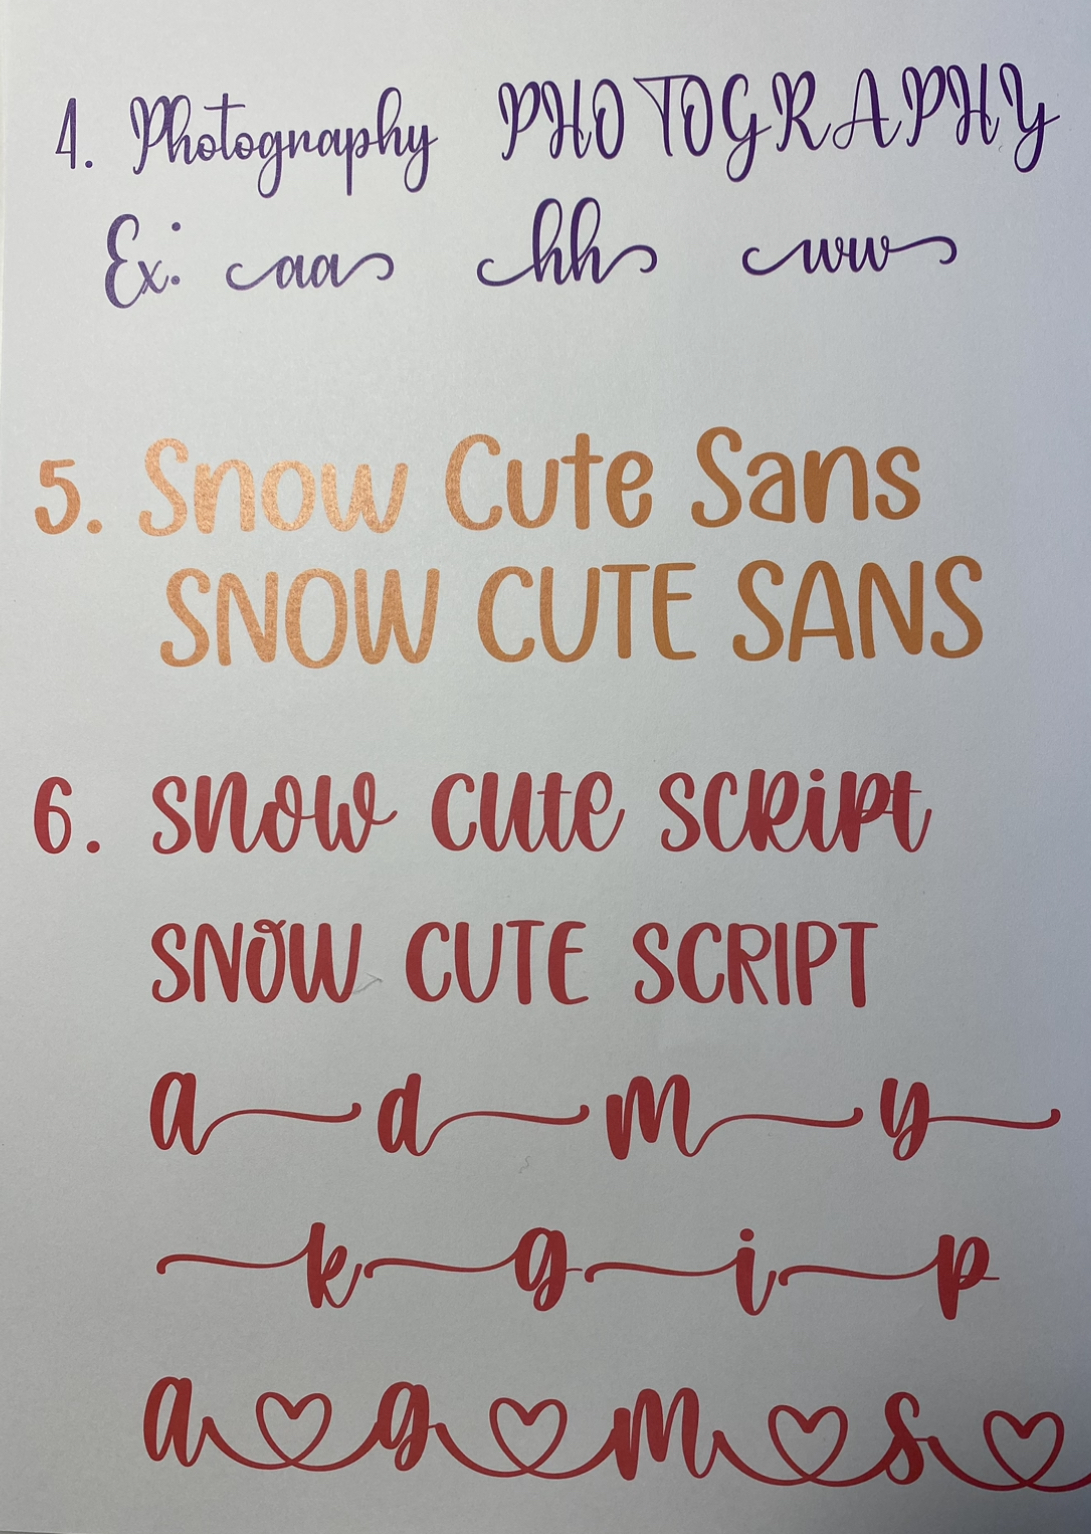 4. Photography PHOTOGRAPHY
Ex: aa hh ww
5. Snow Cute Sans
SNOW CUTE SANS
6. snow cute script
SNOW CUTE SCRIPT
a d m y
k g i p
a g m s